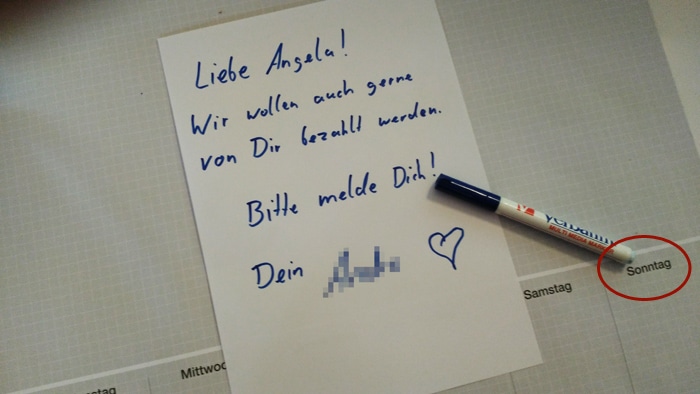 Liebe Angela!
Wir wollen auch gerne
von Dir bezahlt werden.
Bitte melde Dich!
Dein
Verbatim
MULTI MEDIA MARKER
Sonntag
Samstag
Mittwoc
stag